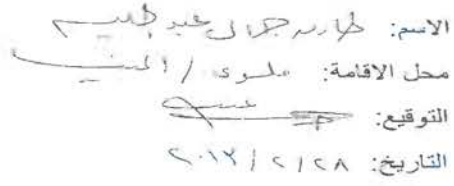 الاسم: طارق جمال عبد الحليم
محل الاقامة: ملوى / المنيا
التوقيع:
التاريخ: ٢٨ / ٢ / ٢٠١٣